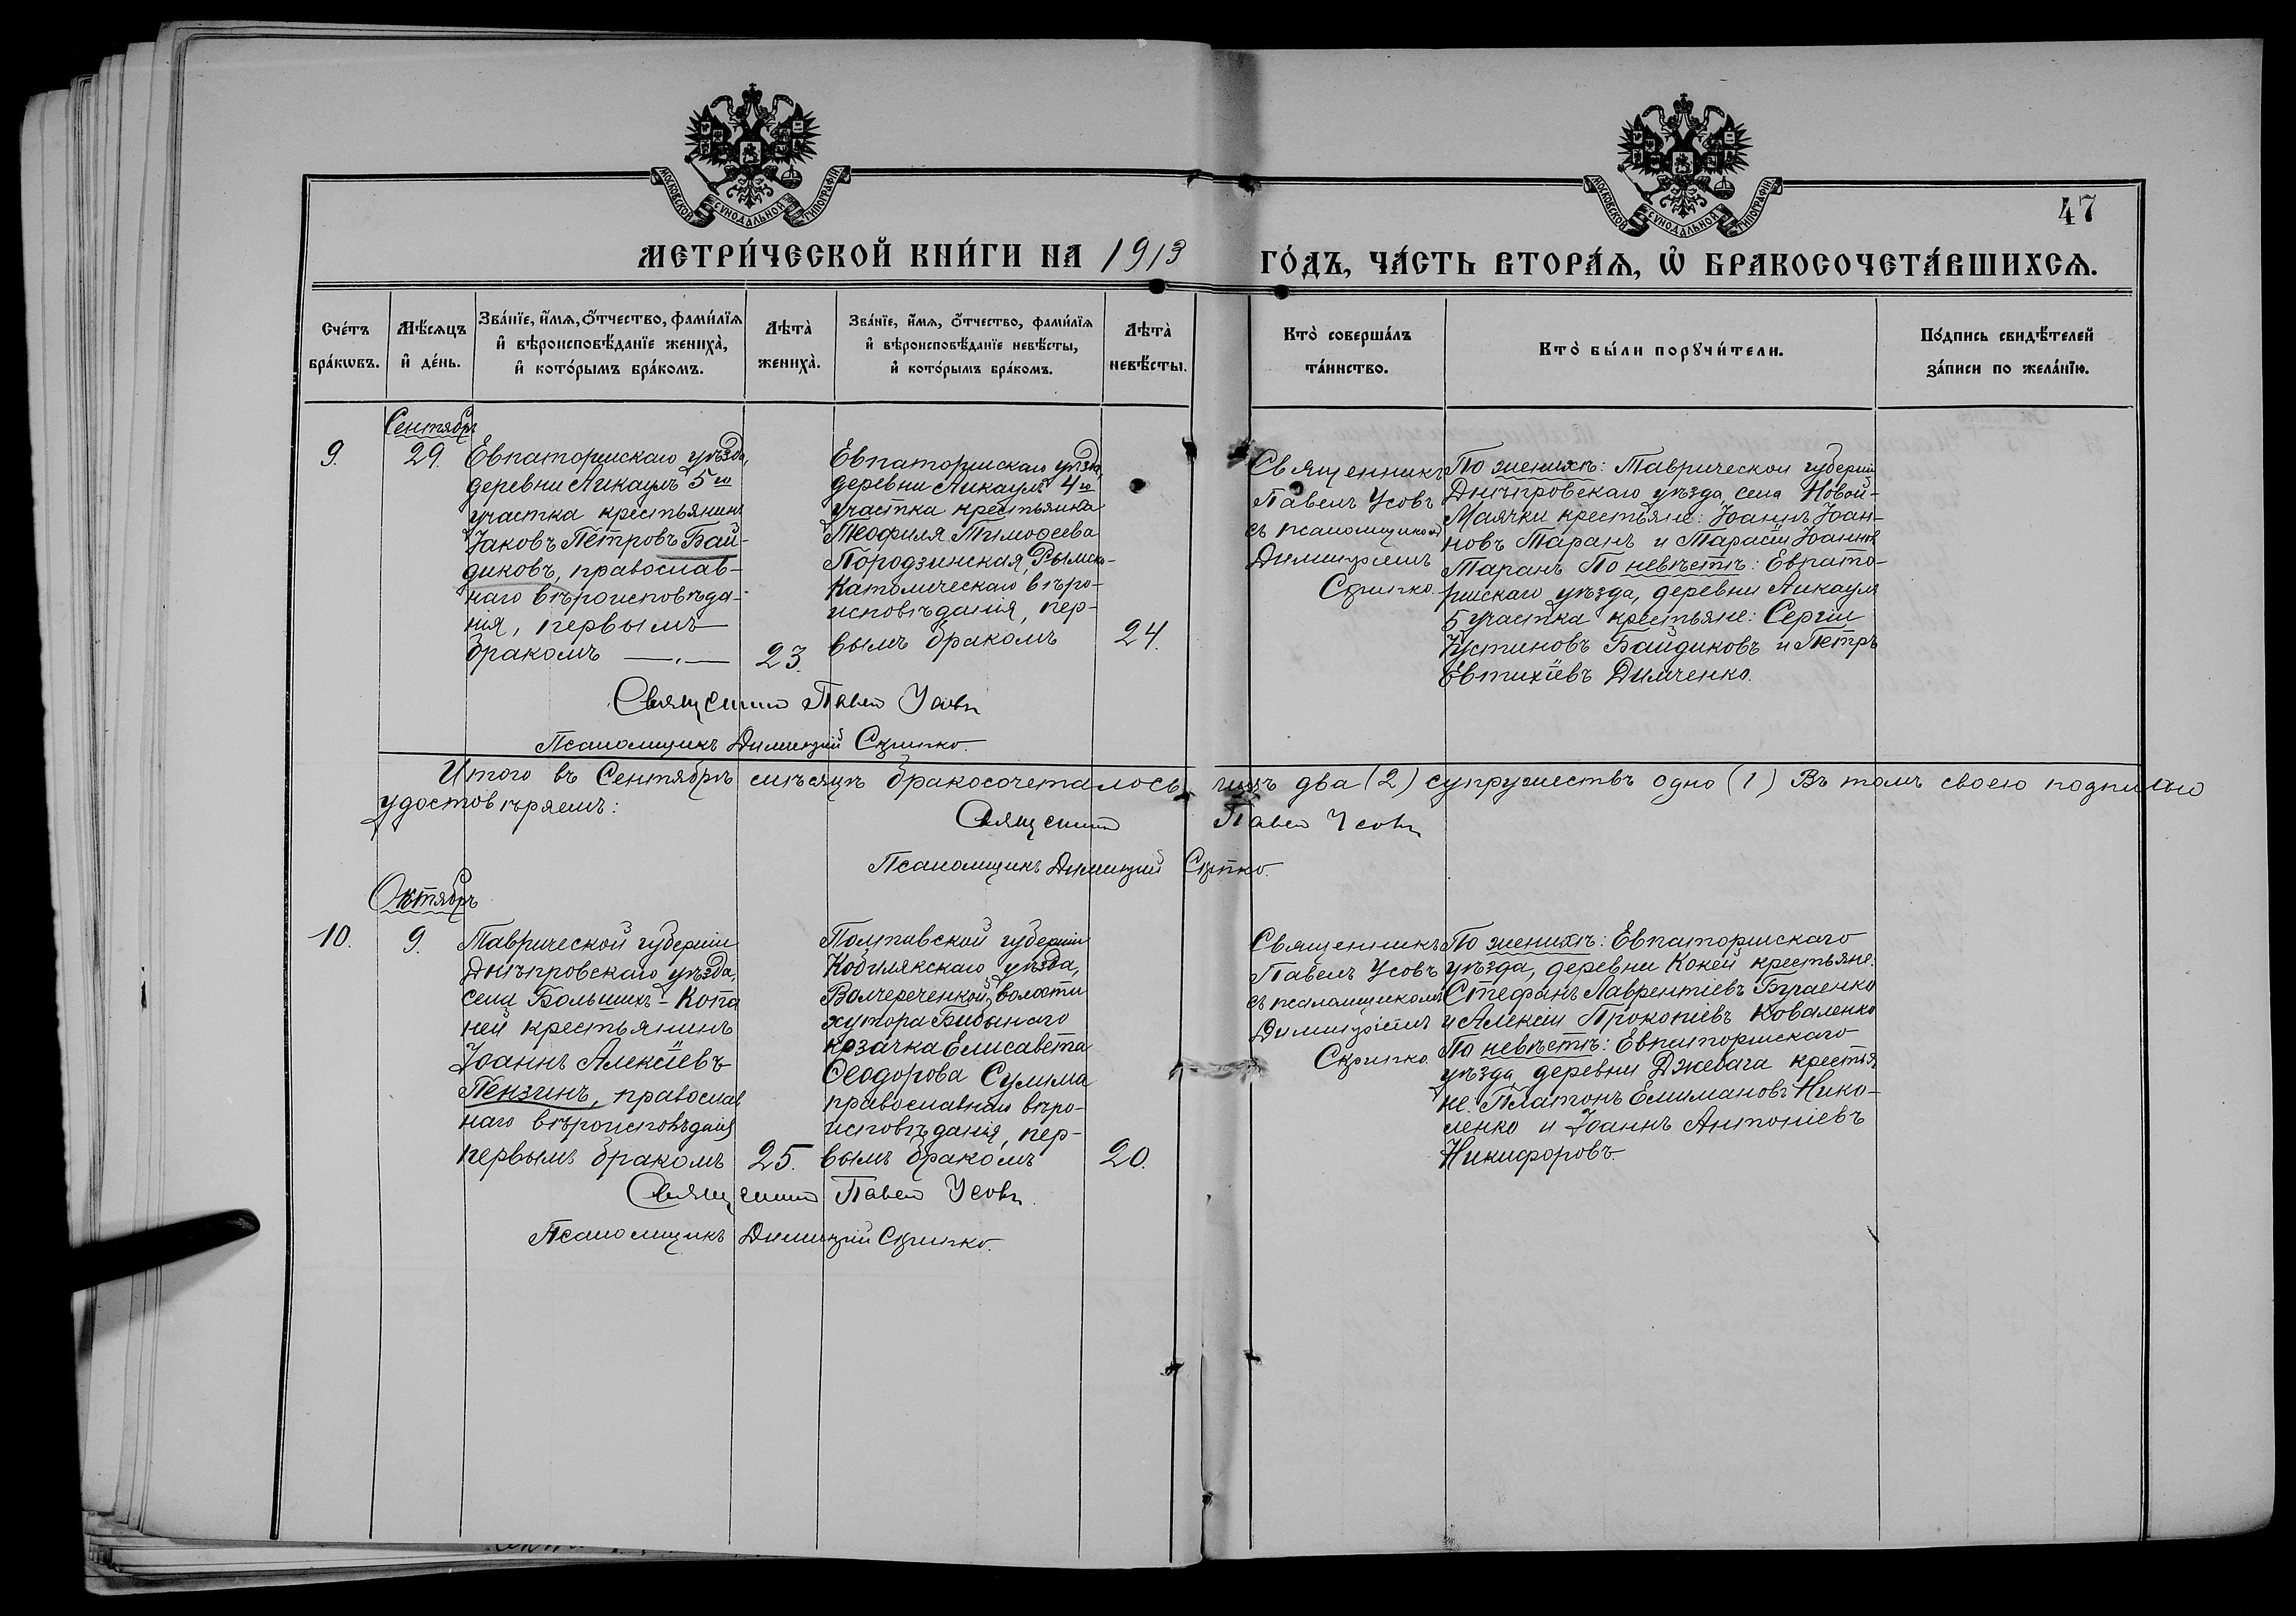 МОСКОВСКОЙ СУНОДАЛЬНОЙ ТИПОГРАФІИ
МОСКОВСКОЙ СУНОДАЛЬНОЙ ТИПОГРАФІИ
47
МЕТРИ́ЧЕСКОЙ КНИ́ГИ НА 1913 ГО́ДЪ, ЧА́СТЬ ВТОРА́Ѧ, Ѽ БРАКОСОЧЕТА́ВШИХСѦ.
Сче́тъ
бра́кѡвъ.
Мѣ́сяцъ
и҆ де́нь.
Зва́нїе, и҆́мѧ, ѻ҆́тчество, фами́лїѧ
и҆ вѣроисповѣ́данїе жениха̀,
и҆ кото́рымъ бра́комъ.
Лѣта̀
жениха̀.
Зва́нїе, и҆́мѧ, ѻ҆́тчество, фами́лїѧ
и҆ вѣроисповѣ́данїе невѣ́сты,
и҆ кото́рымъ бра́комъ.
Лѣта̀
невѣ́сты.
Кто̀ соверша́лъ
та́инство.
Кто̀ бы́ли порꙋчи́тели.
По́дпись свидѣ́телей
за́писи по жела́нїю.
Сентябрь
9.
29.
Евпаторійскаго уѣзда,
деревни Аикаулъ 5го
участка крестьянинъ
Іаковъ Петровъ Бай-
диковъ, православ-
наго вѣроисповѣда-
нія, первымъ
бракомъ —„—
23.
Евпаторійскаго уѣзда,
деревни Аикаулъ 4го
участка крестьянка
Теофиля Тимоѳеева
Породзинская, Римско-
Католическаго вѣро-
исповѣданія, пер-
вымъ бракомъ
24.
Священникъ
Павелъ Усовъ
съ псаломщикомъ
Димитріемъ
Скрипко.
По женихѣ: Таврической губерніи
Днѣпровскаго уѣзда, села Новой-
Маячки крестьяне: Іоаннъ Іоан-
новъ Таранъ и Тарасій Іоанновъ
Таранъ По невѣстѣ: Евпато-
рійскаго уѣзда, деревни Аикаулъ
5 участка крестьяне: Сергій
Іустиновъ Байдиковъ и Петръ
Евтихіевъ Димченко.
Священникъ Павелъ Усовъ
Псаломщикъ Димитрій Скрипко.
Итого въ Сентябрѣ мѣсяцѣ бракосочеталось лицъ два (2) супружествъ одно (1) Въ томъ своею подписью
удостовѣряемъ:
Священникъ Павелъ Усовъ
Псаломщикъ Димитрій Скрипко.
Октябрь
10.
9.
Таврической губерніи
Днѣпровскаго уѣзда,
села Большихъ-Копа
ней крестьянинъ
Іоаннъ Алексіевъ
Пензинъ, православ
наго вѣроисповѣданія
первымъ бракомъ
25.
Полтавской губерніи
Кобелякскаго уѣзда,
Волчереченкой, волости
хутора Бибынаго
козачка Елисавета
Ѳеодорова Сулима
православнаго вѣро-
исповѣданія, пер-
вымъ бракомъ
20.
Священникъ
Павелъ Усовъ
съ псаломщикомъ
Димитріемъ
Скрипко.
По женихѣ: Евпаторійскаго
уѣзда, деревни Кокей крестьяне:
Стефанъ Лаврентіевъ Бугаенко
и Алексій Прокопіевъ Коваленко
По невѣстѣ: Евпаторійскаго
уѣзда, деревни Джебага крестья
не. Платонъ Емилиановъ Нико-
ленко и Іоаннъ Антоніевъ
Никифоровъ.
Священникъ Павелъ Усовъ.
Псаломщикъ Димитрій Скрипко.